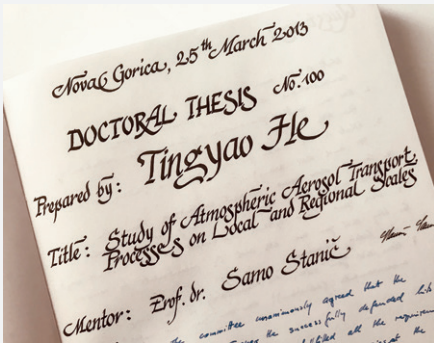 Nova Gorica, 25th March 2013
DOCTORAL THESIS No. 100
Prepared by: Tingyao He
Title: Study of Atmospheric Aerosol Transport
Processes on Local and Regional Scales
Mentor: Prof. dr. Samo Stanič
the committee unanimously agreed that the
the successfully defended his
all the
the